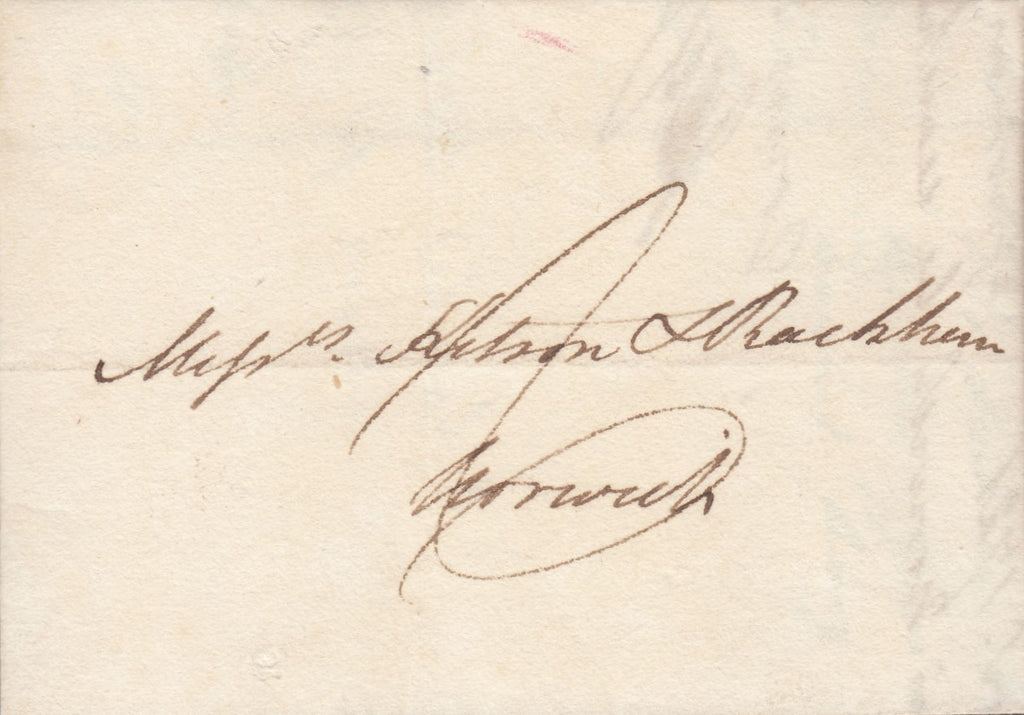 Messrs. Kitson & Rackham
Norwich